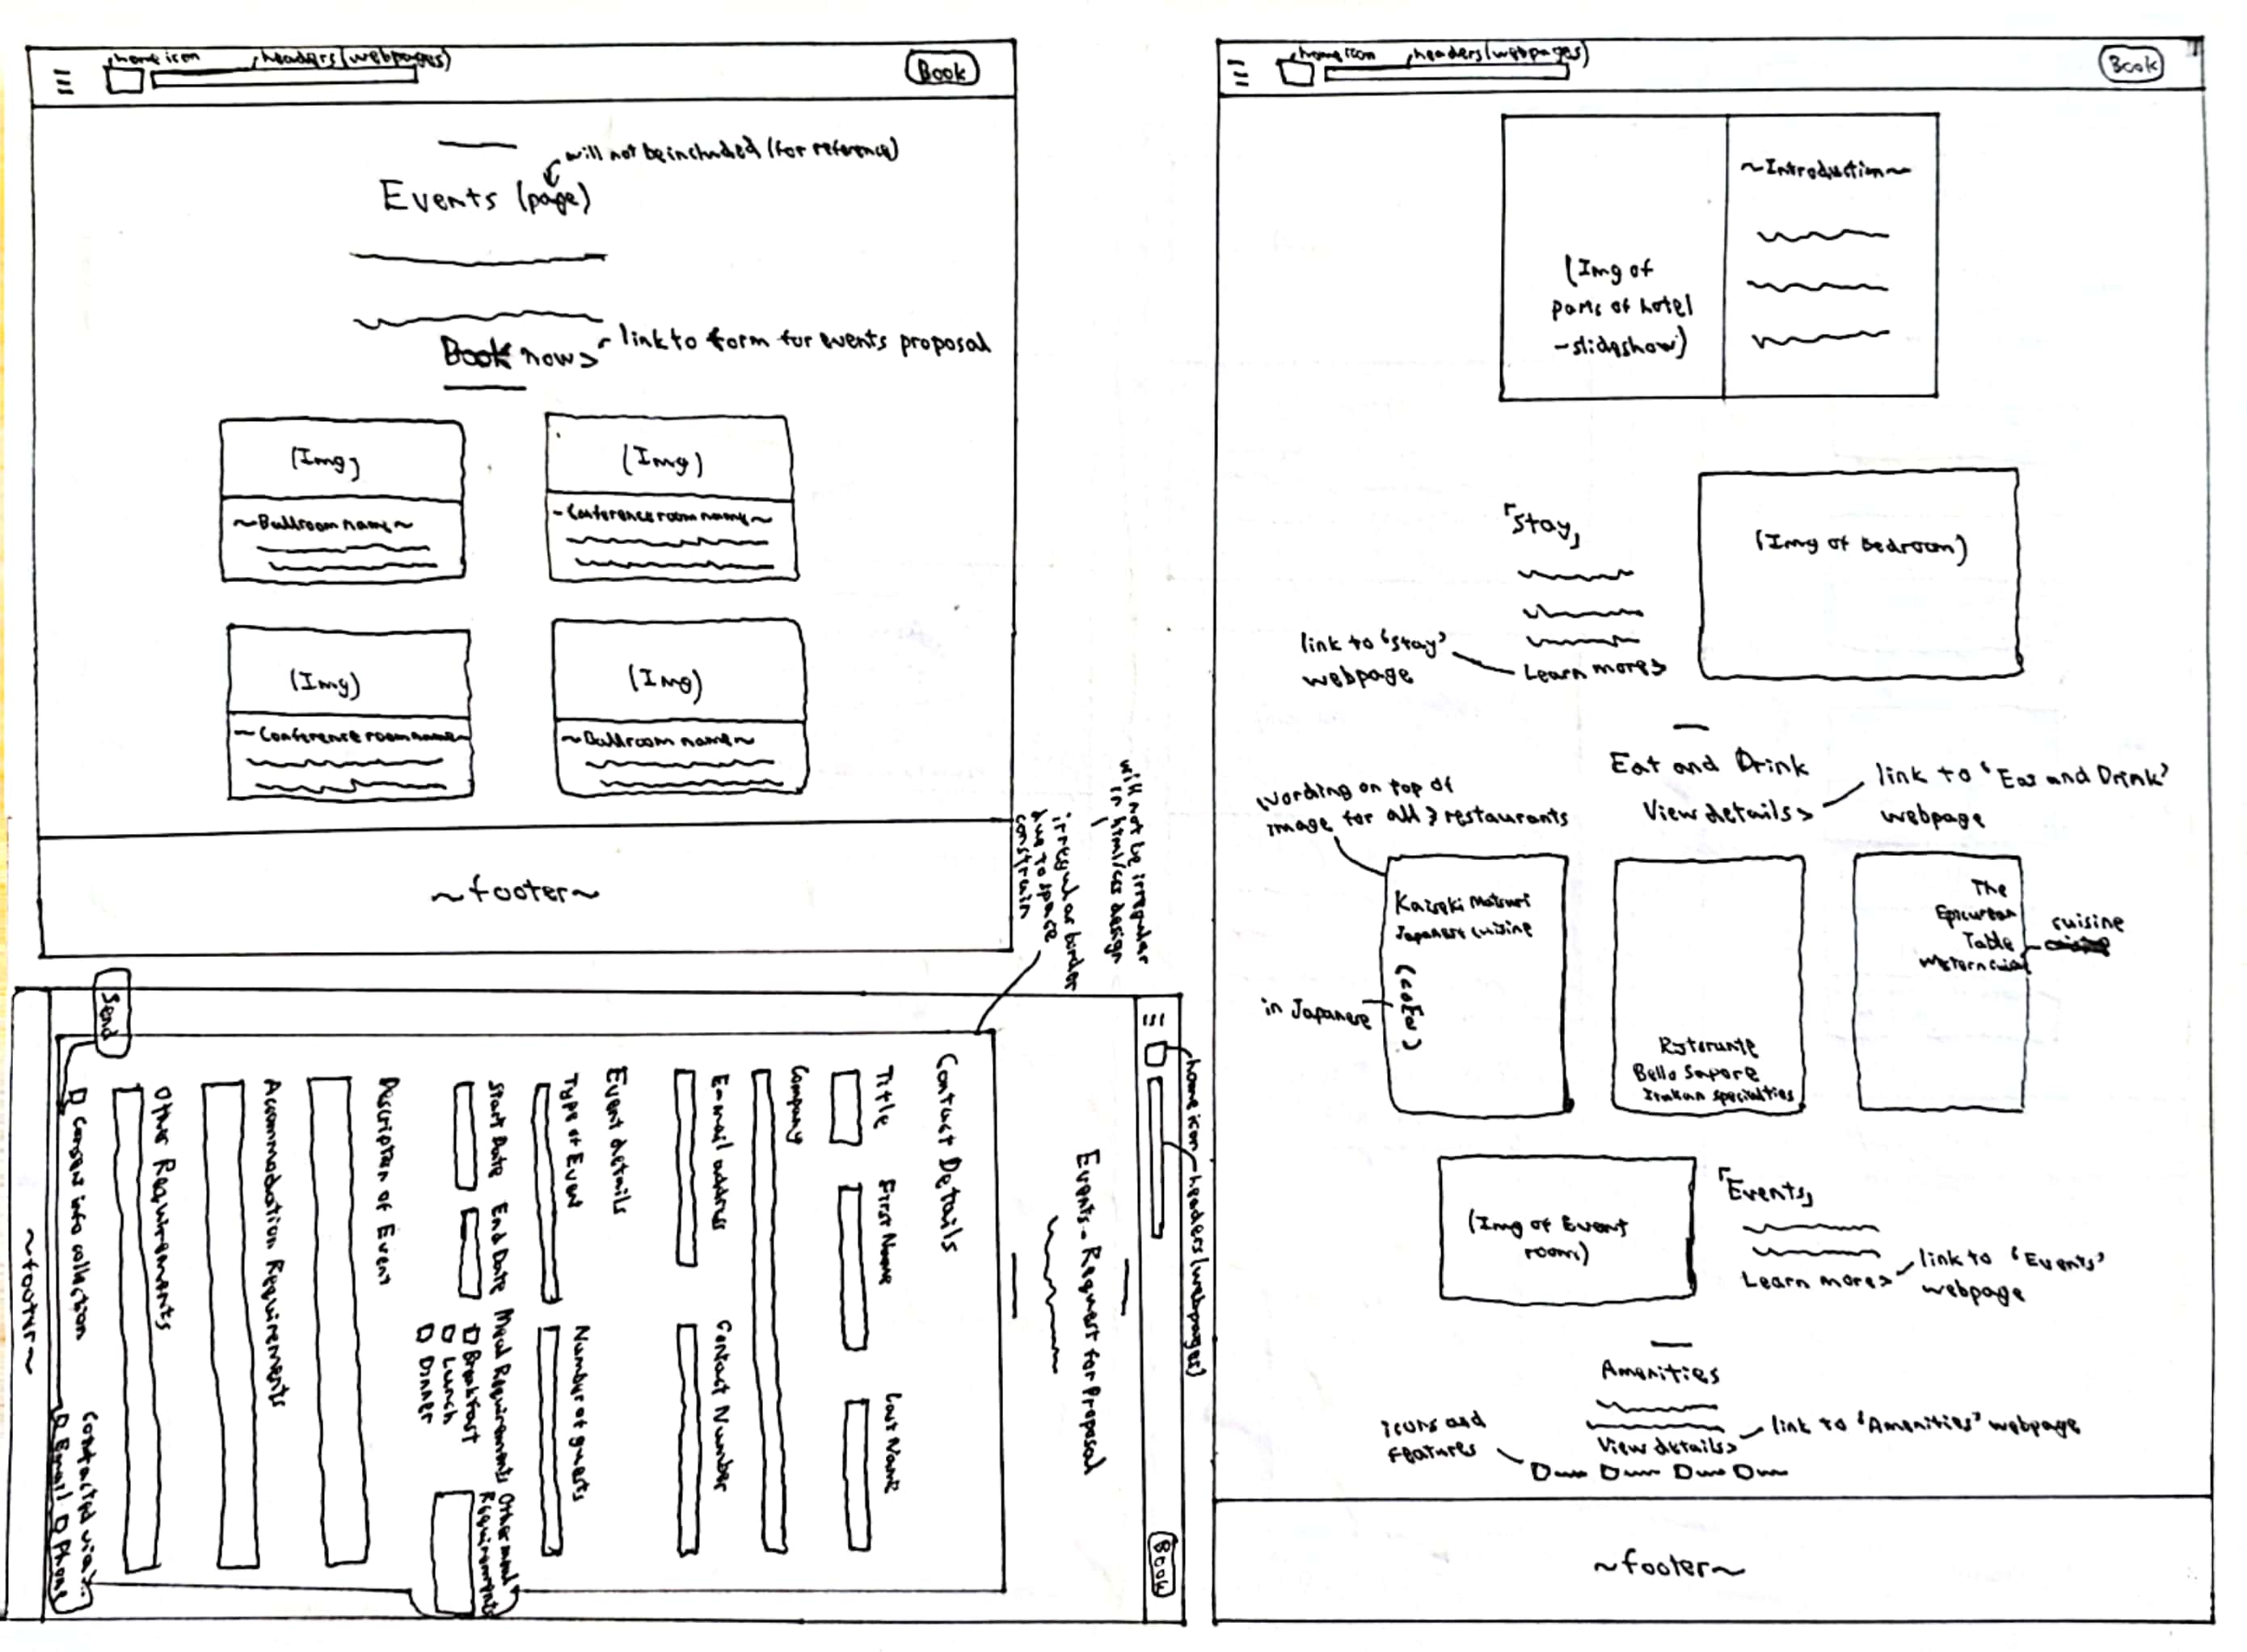 home icon
headers(webpages)
Book
will not be included (for reference)
Events (page)
Book now>
link to form for events proposal
(Img)
~Ballroom name~
(Img)
~Conference room name~
(Img)
~Conference room name~
(Img)
~Ballroom name~
~footer~
irregular border
due to space
constrain
will not be irregular
in html/css design
home icon
headers(webpages)
Book
Events - Request for Proposal
Contact Details
Title
First Name
Last Name
Company
E-mail address
Contact Number
Event details
Type of Event
Number of guests
Start Date
End Date
Meal Requirements
Breakfast
Lunch
Dinner
Other meal
Requirements
Description of Event
Accommodation Requirements
Other Requirements
Consent info collection
Contacted via:
Email
Phone
Send
~footer~
home icon
headers(webpages)
Book
~Introduction~
(Img of
parts of hotel
-slideshow)
「Stay」
(Img of bedroom)
link to 'Stay'
webpage
Learn more>
Eat and Drink
View details>
link to 'Eat and Drink'
webpage
wording on top of
image for all 3 restaurants
Kaiseki Matsuri
Japanese cuisine
in Japanese
Bella Sapore
Italian specialties
The
Epicurean
Table
Western
cuisine
(Img of Event
room)
「Events」
Learn more>
link to 'Events'
webpage
Amenities
View details>
link to 'Amenities' webpage
icons and
features
~footer~